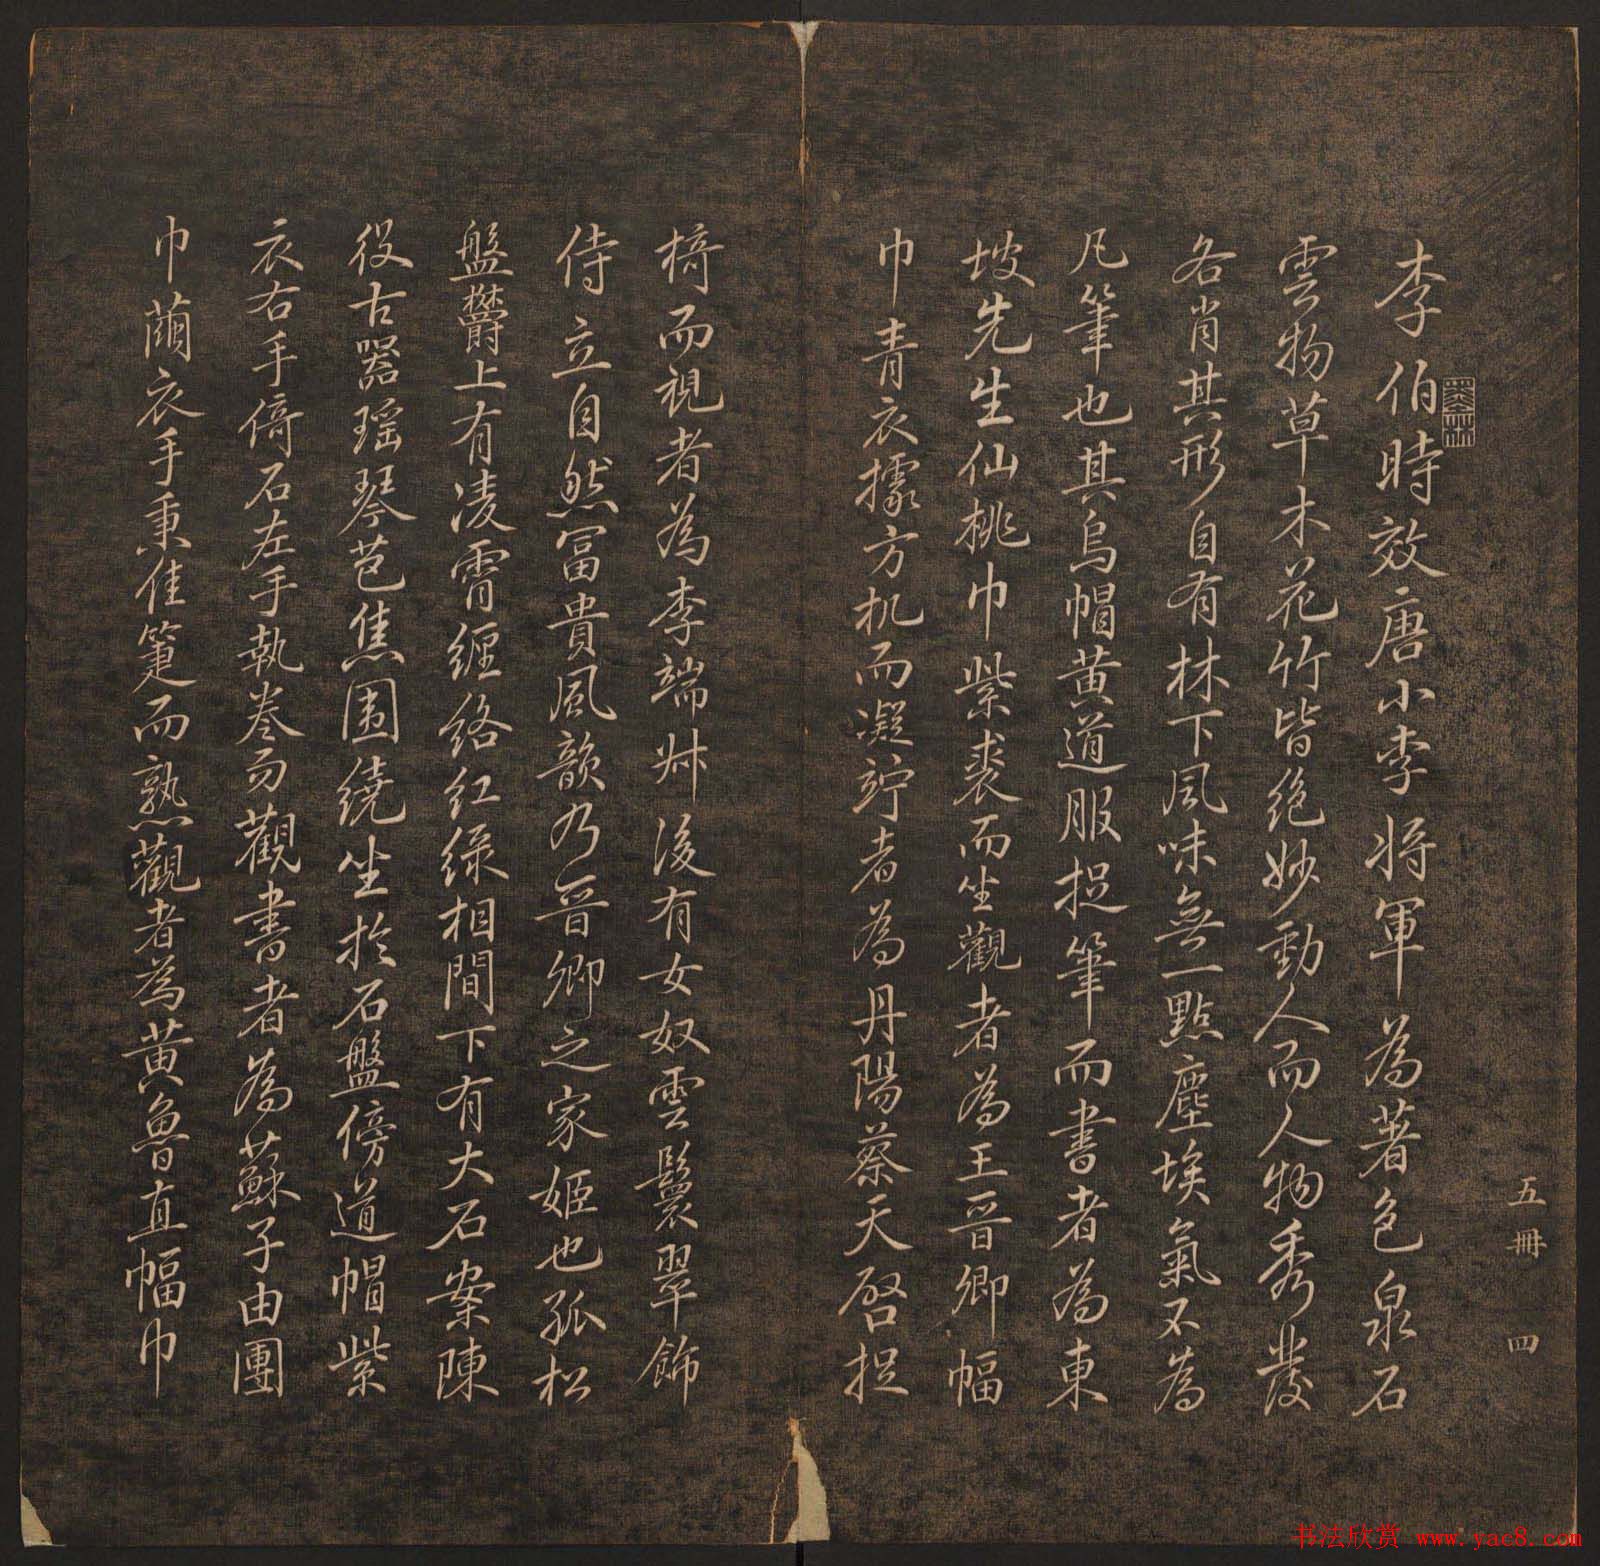 李伯時效唐小李將軍為著色泉石
雲物草木花竹皆絕妙動人而人物秀發
各肖其形自有林下風味無一點塵埃氣不為
凡筆也其烏帽黃道服捉筆而書者為東
坡先生仙桃巾紫裘而坐觀者為王晉卿幅
巾青衣據方机而凝竚者為丹陽蔡天啓捉
椅而視者為李端叔後有女奴雲鬟翠飾
侍立自然冨貴風韻乃晉卿之家姬也孤松
盤欝上有凌霄纏絡紅綠相間下有大石案陳
役古器瑶琴芭焦圍繞坐於石盤傍道帽紫
衣右手倚石左手執卷而觀書者為蘇子由團
巾繭衣手秉佳箑而熟觀者為黃魯直幅巾
墨林
五冊 四
书法欣赏 www.yac8.com